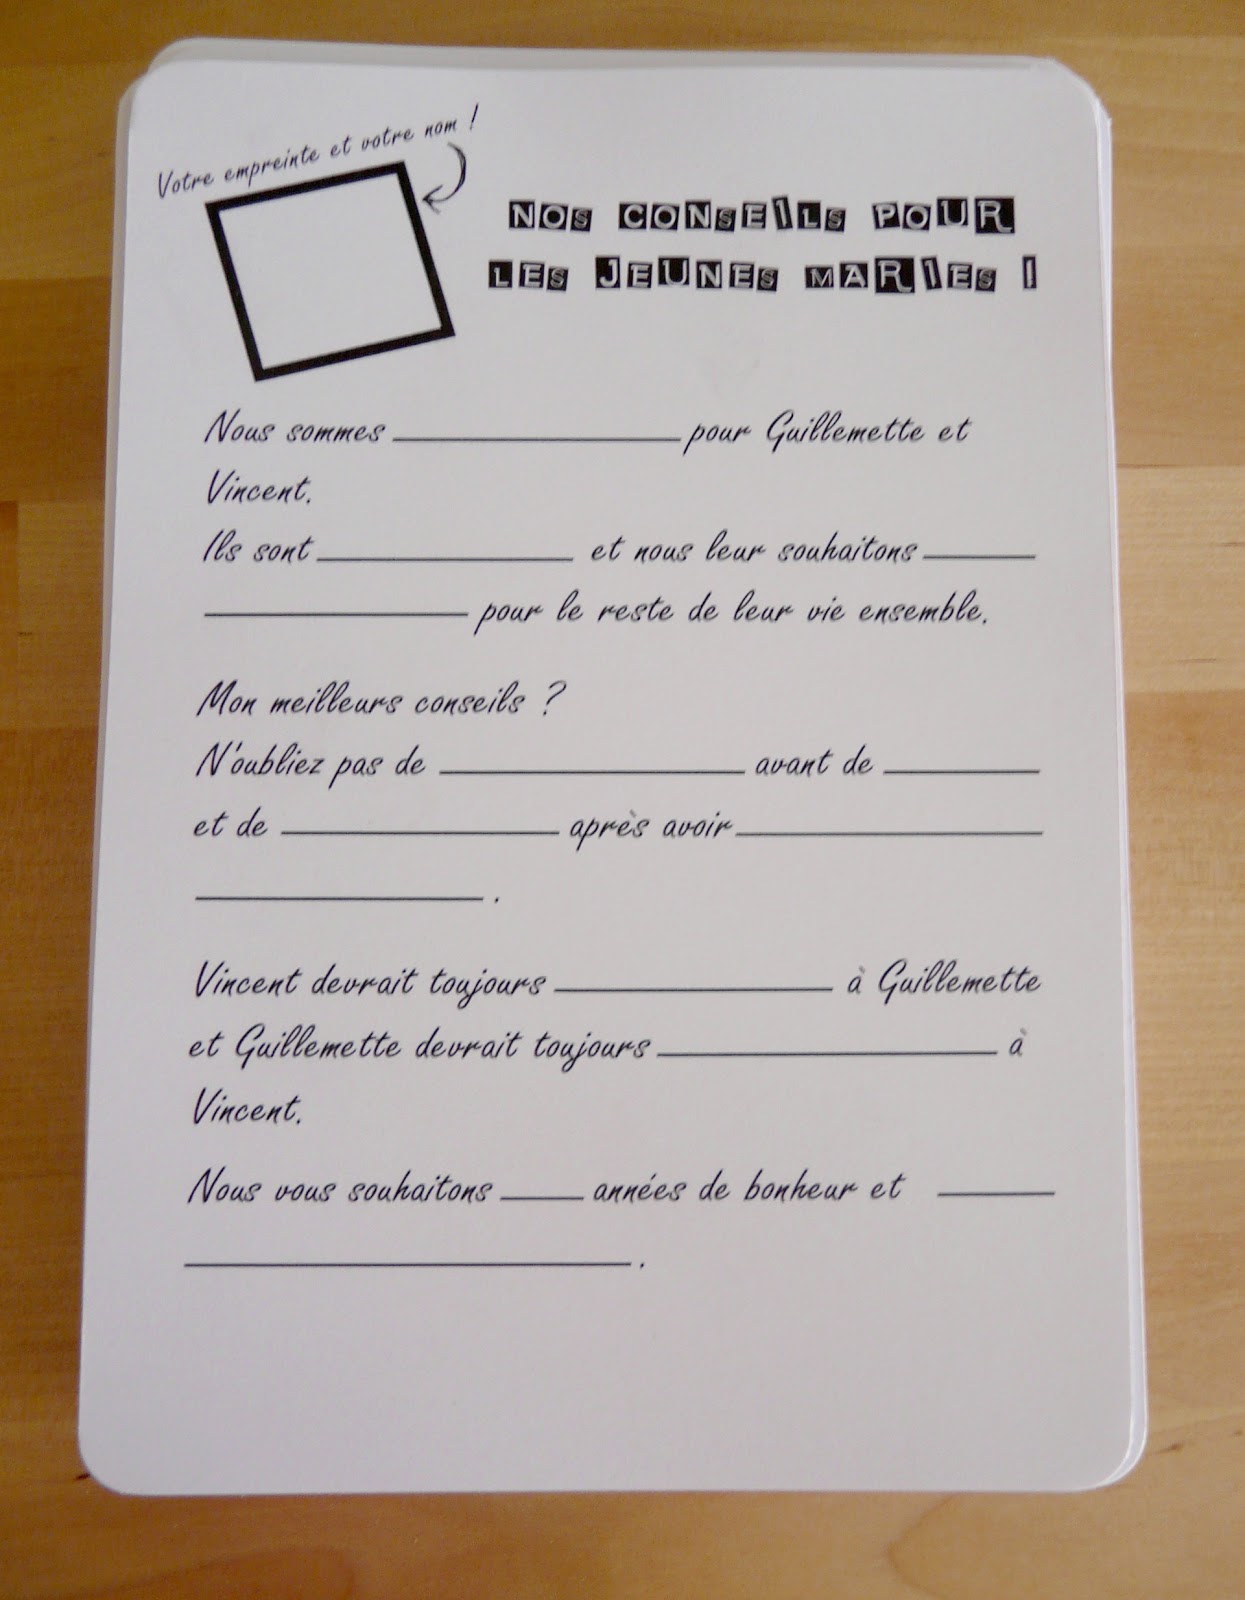 Votre empreinte et votre nom !
NOS CONSEILS POUR
LES JEUNES MARIES !
Nous sommes ____________ pour Guillemette et
Vincent.
Ils sont ____________ et nous leur souhaitons ______
____________ pour le reste de leur vie ensemble.
Mon meilleurs conseils ?
N'oubliez pas de ____________ avant de ________
et de ____________ après avoir ____________
____________ .
Vincent devrait toujours ____________ à Guillemette
et Guillemette devrait toujours ____________ à
Vincent.
Nous vous souhaitons ____ années de bonheur et ______
____________________ .